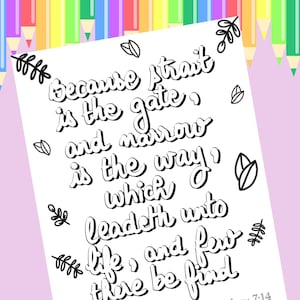 because strait
is the gate,
and narrow
is the way,
which
leadeth unto
life, and few
there be find
7:14